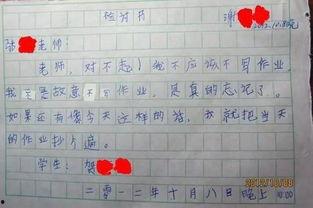 检讨书
谢
2012.10.8晚
老师:
老师,对不起!我不应该不写作业,
我不是故意不写作业,是真的忘记了。
如果还有像今天这样的话,我就把当天
的作业抄片遍。
学生:贺
二零一二年十月八日晚上
10:00
2012/10/08